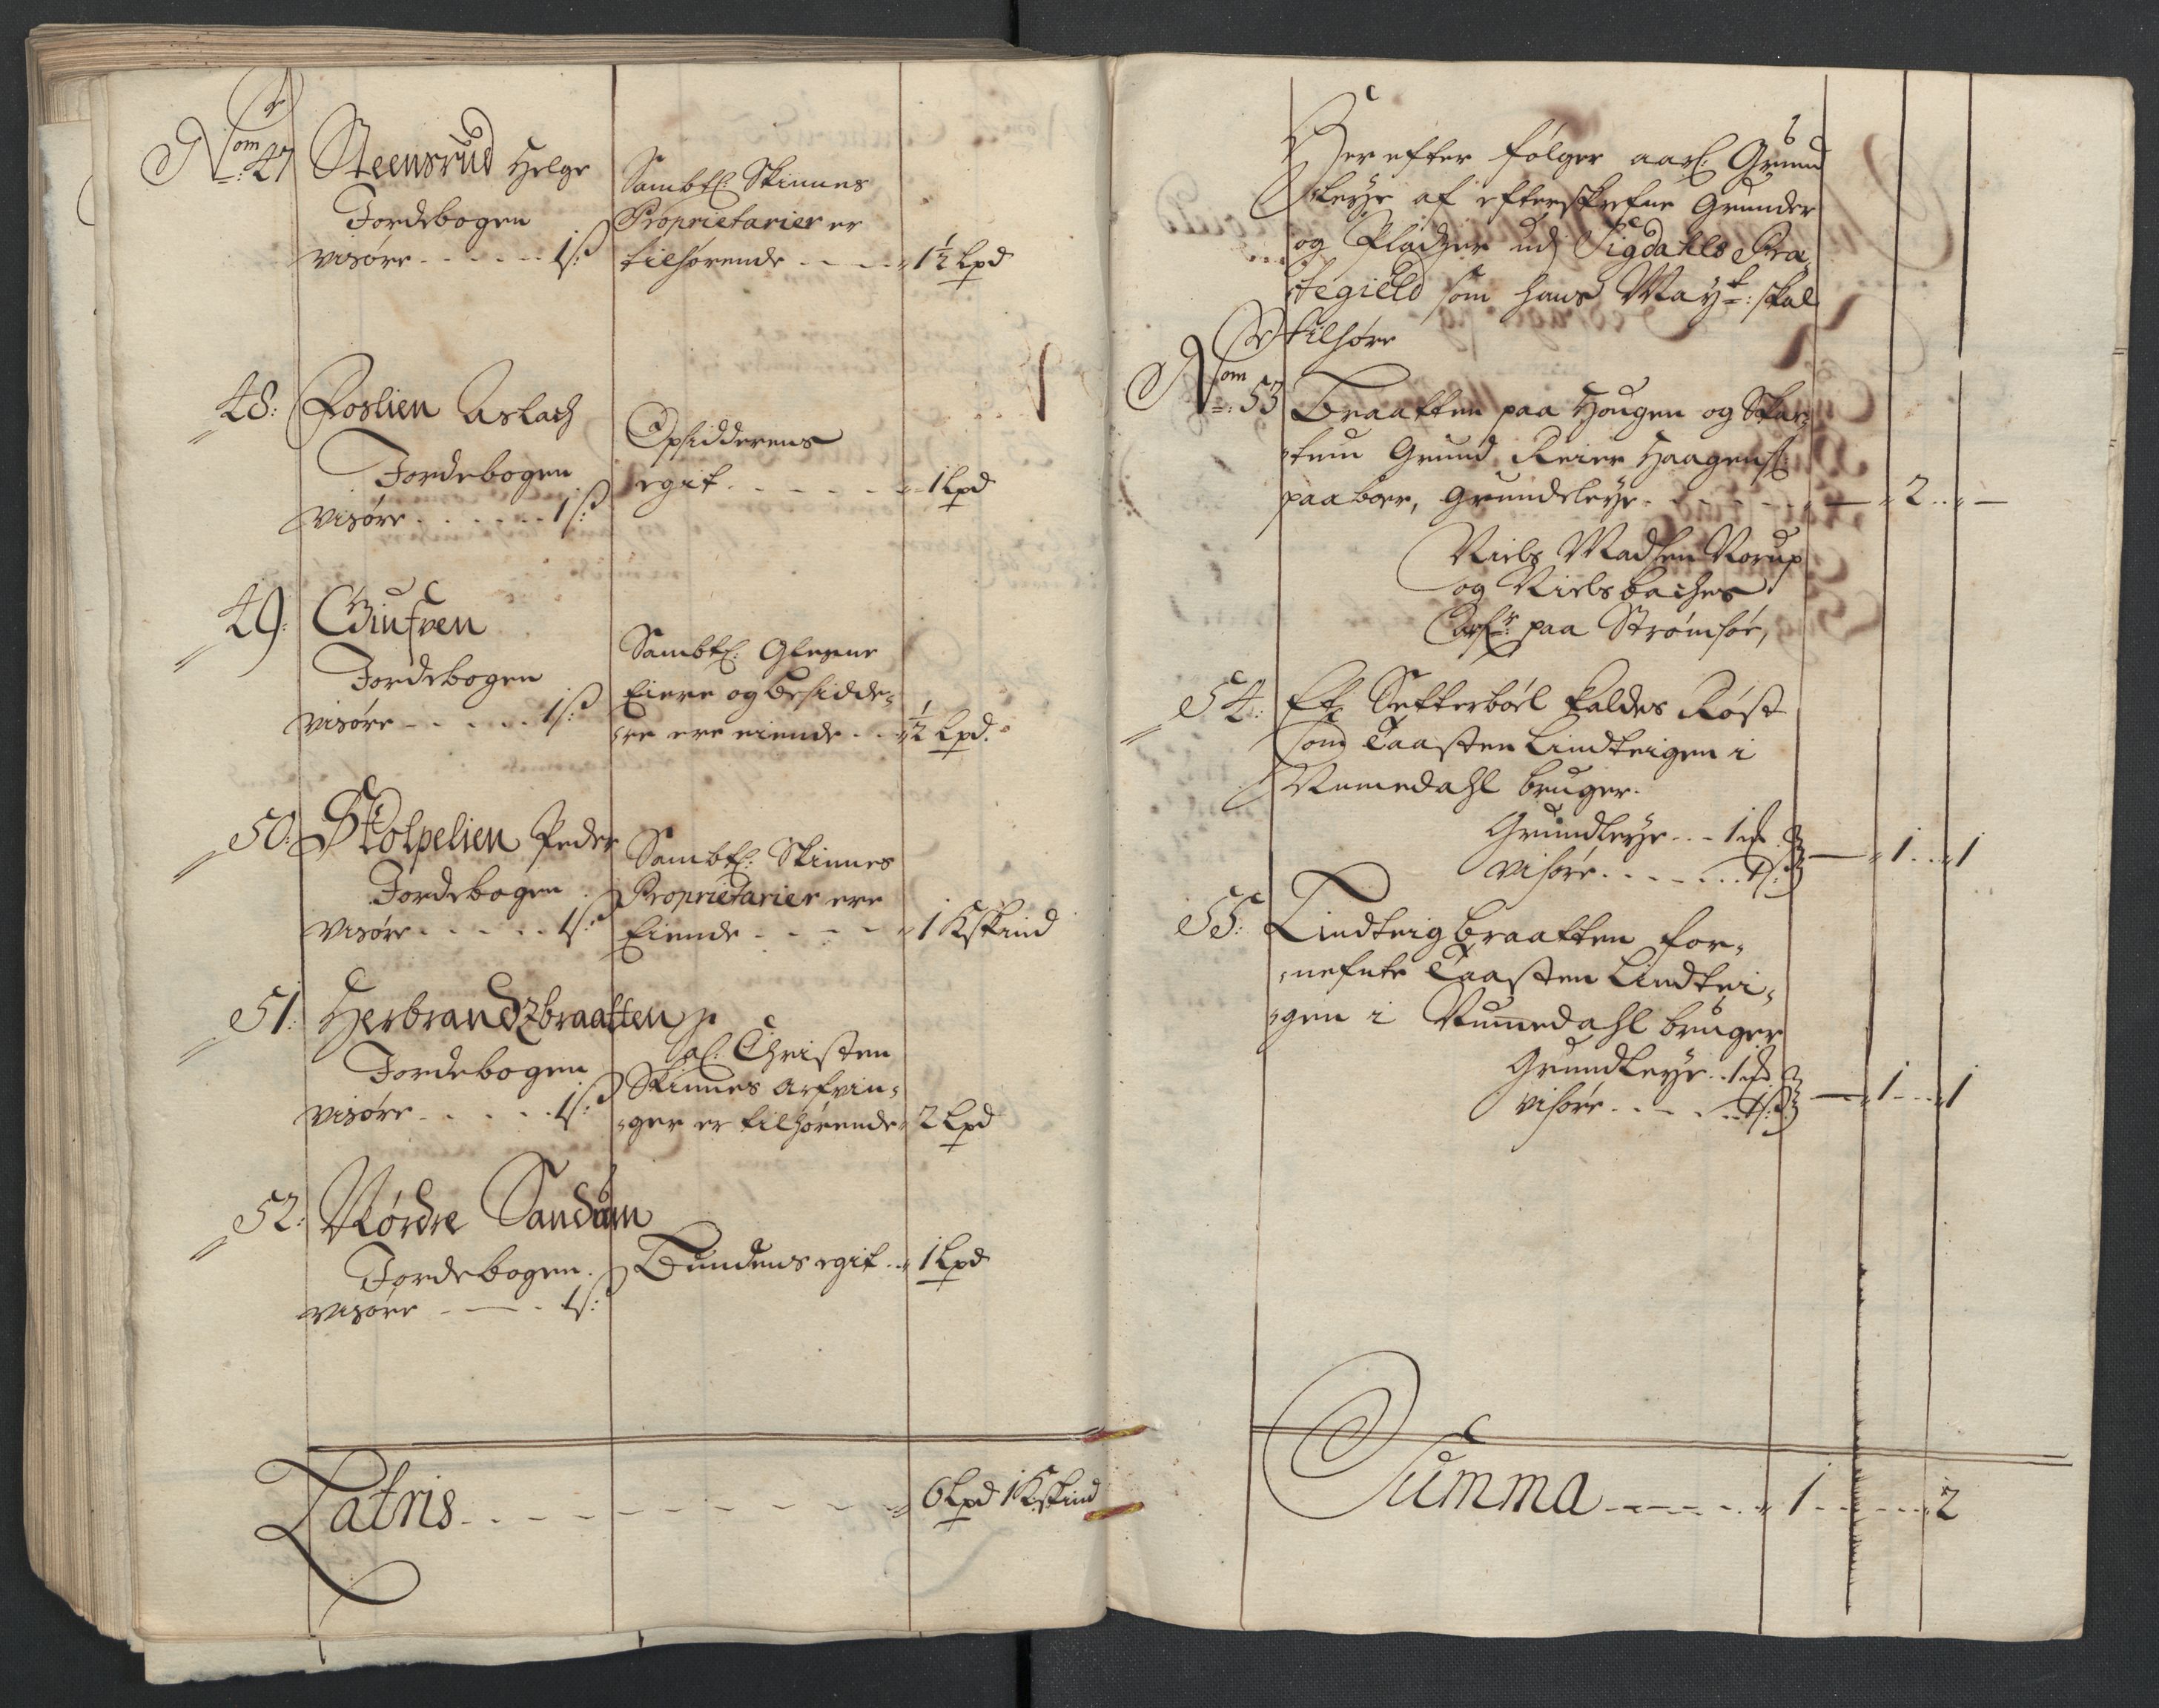 No: 47 Steensrud Helge
Jordebogen
visøre - - - - - 1 ß:
Sambtl: Skinnes
Proprietarier er
tilhørende - - - - 1½ Lpd
48: Foslien Aslach
Jordebogen
visøre - - - - - 1 ß:
Opsidderens
egit - - - - - 1 Lpd
49:
Jordebogen
visøre - - - - - 1 ß:
Sambtl: Glesne
Eiere og besidde-
re ere eiende - - ½ Lpd.
50: Stolpelien Peder
Jordebogen
visøre - - - - - 1 ß:
Sambtl: Skinnes
Proprietarier ere
Eiende - - - - 1 Kskind
51: Herbrandzbraatten
Jordebogen
visøre - - - - - 1 ß:
Sal: Christen
Skinnes arfvin-
ger er tilhørende 2 Lpd
52: Nørdre Sandum
Jordebogen
visøre - - - 1 ß:
Bundens egit - - 1 Lpd
Latris - - - - - - - - 6 Lpd 1 Kskind
Her efter følger aarl: Grund
Leye af efterskrefne Grunder
og Pladzer udj Sigdahls Præ-
stegield som hans Mayt: skal
tilhøre
No: 53 Braatten paa Hougen og Skar-
tum Grund Reier Haagens:
paaboer, Grundeleye - - - - - 2 - - -
Niels Madsen Norup
og Niels baches
Arf: paa Strømsøe,
54: Et Setterböel kaldes Røst
som Taasten Lindteigen i
Numedahl bruger.
Grundleye - - 1
visøre - - - - - 1 ß: - 1 - - 1
55: Lindteigbraatten for-
nefnte Taasten Lindtei-
gen i Numedahl bruger
Grundleye - - 1
visøre - - - - - 1 ß: - 1 - - 1
Summa - - - - - 1 - - - - - 2